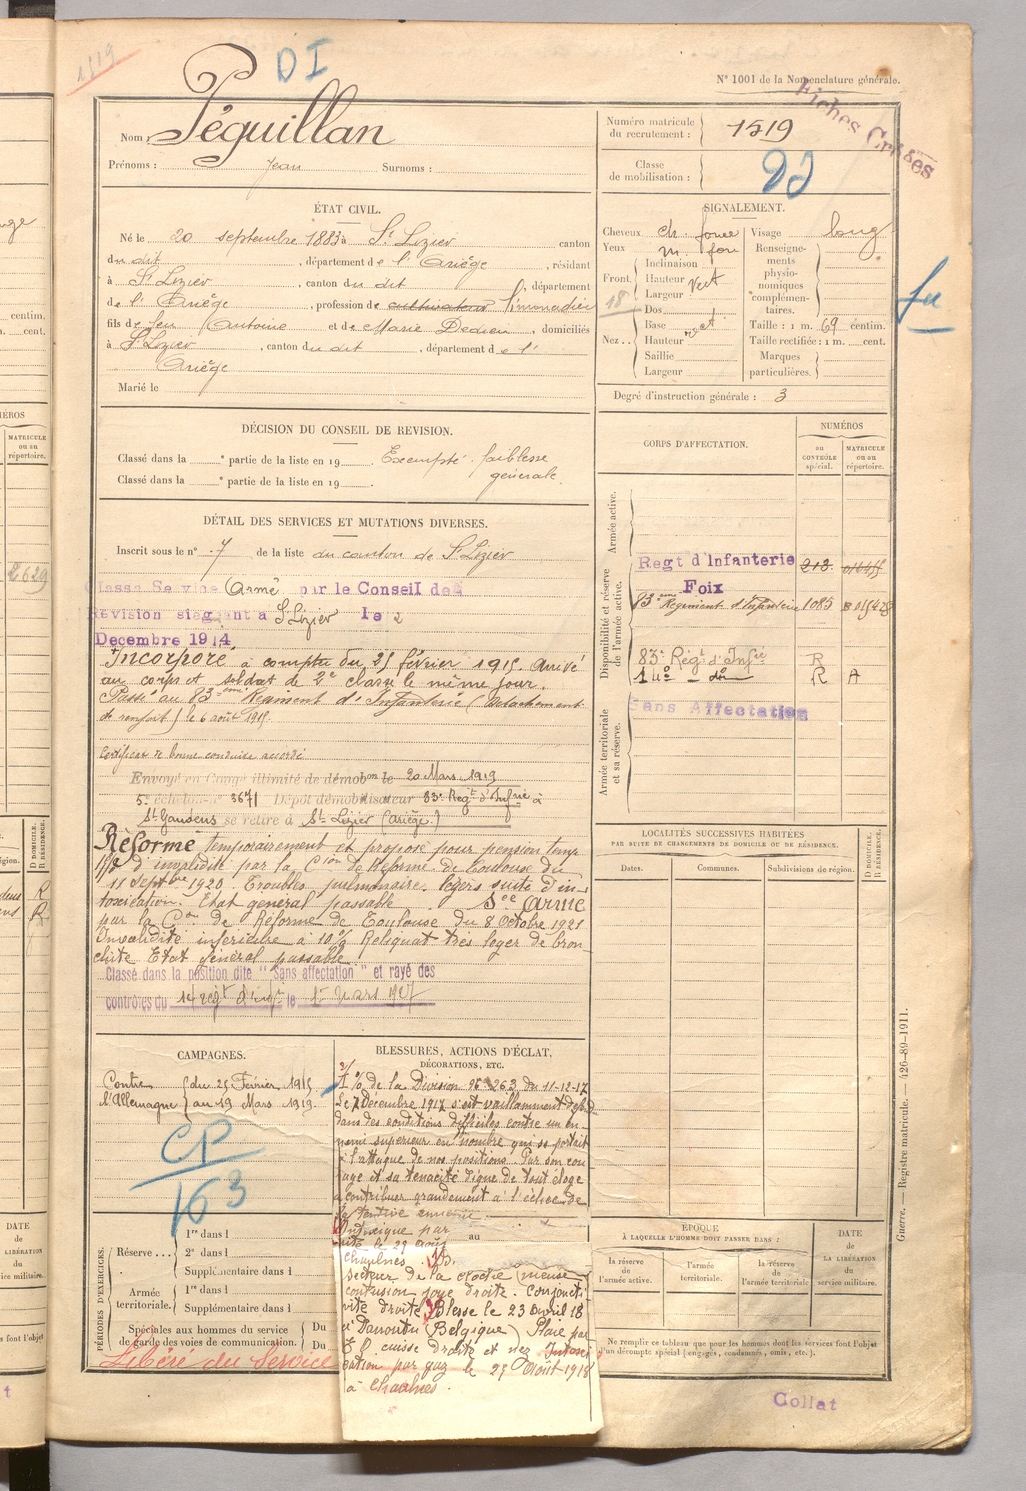 1519
DI
N° 1001 de la Nomenclature générale.
Fiches Croises
Nom : Péguillan
Prénoms : Jean Surnoms :
Numéro matricule du recrutement : 1519
Classe de mobilisation :
ÉTAT CIVIL.
Né le 20 septembre 1883 à St Lizier canton
du dit, département de l'Ariège, résidant
à St Lizier, canton du dit, département
de l'Ariège, profession de cultivateur limonadier
fils de feu Antoine et de Marie Dedieu, domiciliés
à St Lizier, canton du dit, département de l'
Ariège
Marié le
SIGNALEMENT.
Cheveux ch. foncé
Yeux m. fon
Front
Inclinaison
Hauteur vert
Largeur
18
Nez
Dos
Base
Hauteur
Saillie
Largeur
Visage long
Renseignements physionomiques complémentaires.
Taille : 1 m. 69 centim.
Taille rectifiée : 1 m. cent.
Marques particulières.
Degré d'instruction générale : 3
DÉCISION DU CONSEIL DE REVISION.
Classé dans la e partie de la liste en 19 Exempté. faiblesse
Classé dans la e partie de la liste en 19 générale.
DÉTAIL DES SERVICES ET MUTATIONS DIVERSES.
Inscrit sous le n° 7 de la liste du canton de St Lizier
Classé Service Armé par le Conseil de
Révision siégeant à St Lizier le 2
Decembre 1914
Incorporé à compter du 25 février 1915. Arrivé
au corps et soldat de 2e classe le même jour.
Passé au 83ème Régiment d'Infanterie (Détachement
de renfort) le 6 août 1915.
Certificat de bonne conduite accordé
Envoyé en Congé illimité de démobon le 20 Mars 1919
5e échelon n° 3671 Dépôt démobilisateur 83e Regt d'Infrie à
St Gaudens se retire à St Lizier (Ariège.)
Réformé temporairement et proposé pour pension temp
d'invalidité par la Cion de Réforme de Toulouse du
11 Septbre 1920. Troubles pulmonaires légers suite d'in
toxication. Etat général passable. Sce Armé
par la Con de Réforme de Toulouse du 8 Octobre 1921
Invalidité inférieure à 10% Reliquat très léger de bron
chite Etat général passable
Classé dans la position dite "Sans affectation" et rayé des
contrôles du 14 régt d'inf le 1er Mars 1927
CORPS D'AFFECTATION.
NUMÉROS
au CONTRÔLE spécial.
MATRICULE ou au répertoire.
Armée active.
Disponibilité et réserve de l'armée active.
Armée territoriale et sa réserve.
Regt d'Infanterie 212.
Foix
83ème Régiment d'Infanterie 1085
83e Régt d'Infie R
14e - do - R A
Sans Affectation
LOCALITÉS SUCCESSIVES HABITÉES
PAR SUITE DE CHANGEMENTS DE DOMICILE OU DE RÉSIDENCE.
D DOMICILE.
R RÉSIDENCE.
Dates. Communes. Subdivisions de région.
CAMPAGNES.
Contre l'Allemagne
du 25 Février 1915
au 19 Mars 1919.
CP
163
BLESSURES, ACTIONS D'ÉCLAT,
DÉCORATIONS, ETC.
de la Division du 11-12-17
Le 7 Décembre 1917 s'est vaillamment défend
dans des conditions difficiles contre un en-
nemi supérieur en nombre qui se portait
à l'attaque de nos positions. Par son cou
rage et sa ténacité digne de tout éloge
a contribuer grandement à l'échec de
la tentive ennemie
Intoxiqué par
le 29 août
chaulnes
secteur de la cloche (meuse
contusion joue droite. Conjoncti
vite droite Blessé le 23 avril 18
(Belgique) Plaie par
E. l. cuisse droite et nez Intoxi
cation par gaz le 29 Août 1918
à Chaulnes.
PÉRIODES D'EXERCICES.
Réserve
1re dans l au
2e dans l
Supplémentaire dans l
Armée territoriale.
1re dans l
Supplémentaire dans l
Spéciales aux hommes du service
de garde des voies de communication.
Du
Du
Libéré du Service
ÉPOQUE
À LAQUELLE L'HOMME DOIT PASSER DANS :
la réserve de l'armée active.
l'armée territoriale.
la réserve de l'armée territoriale
DATE de LA LIBÉRATION du service militaire.
Ne remplir ce tableau que pour les hommes dont les services font l'objet
d'un décompte spécial (engagés, condamnés, omis, etc.).
Guerre. — Registre matricule. — 426-89-1911.
Collat
MATRICULE ou au répertoire.
centim.
cent.
DATE de LIBÉRATION